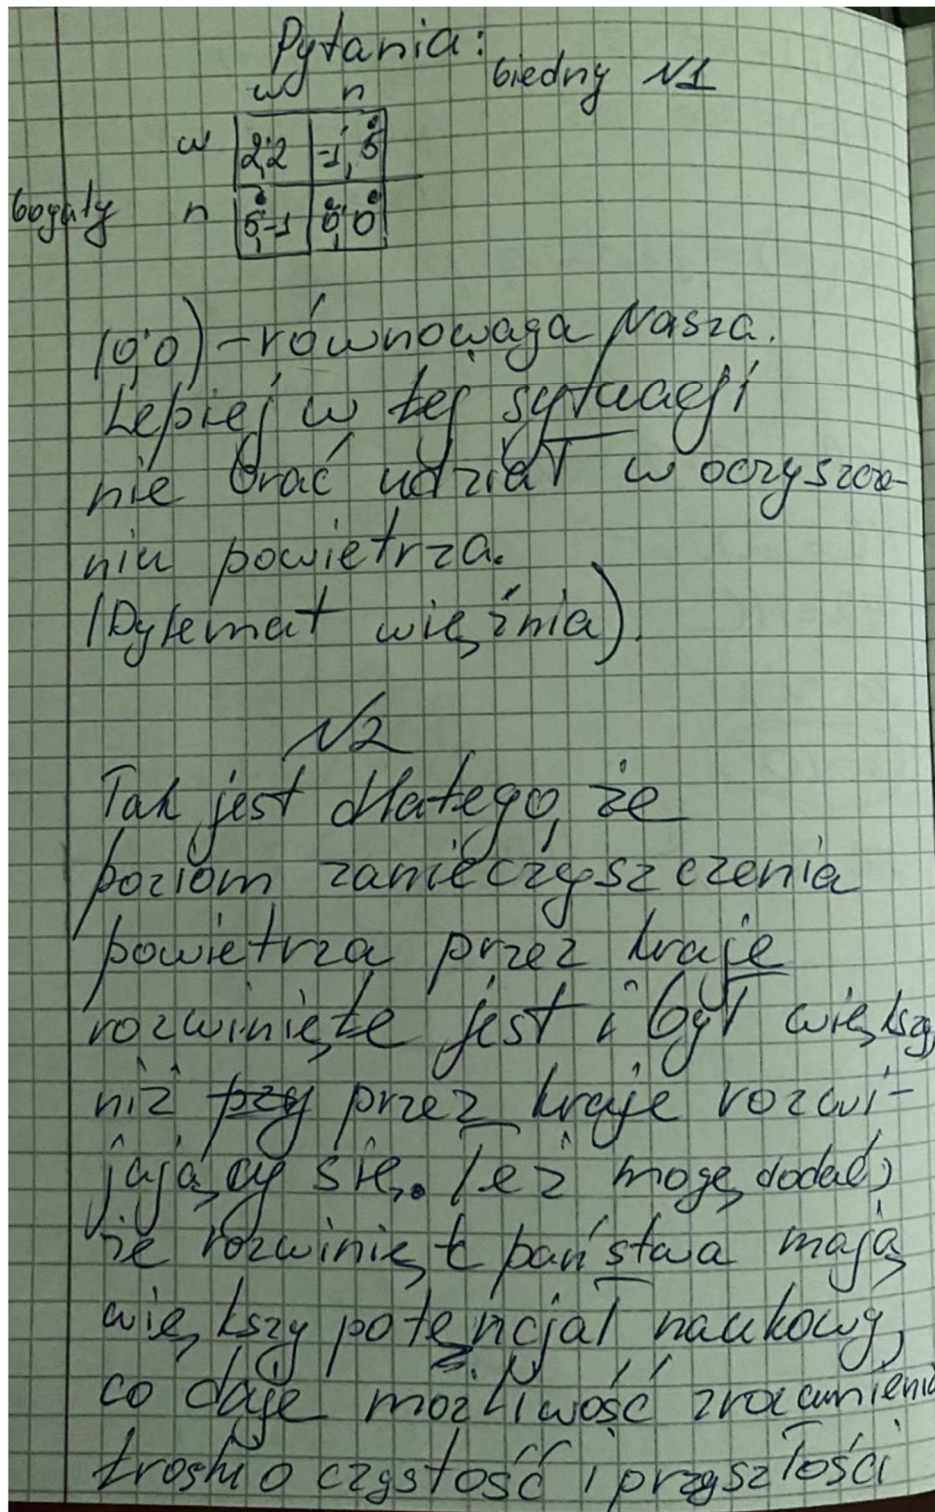 Pytania:
biedny №1
w n
w 2;2 -1,5
bogaty n 5,-1 0,0
(0;0) - równowaga Nasza.
Lepiej w tej sytuacji
nie brać udział w oczyszcza-
niu powietrza.
(Dylemat więźnia).
№2
Tak jest dlatego, że
poziom zanieczyszczenia
powietrza przez kraje
rozwinięte jest i był większy,
niż przez kraje rozwi-
jający się. Też mogę dodać,
że rozwinięte państwa mają
większy potencjał naukowy,
co daje możliwość zrozumienia
troski o czystość i przyszłości